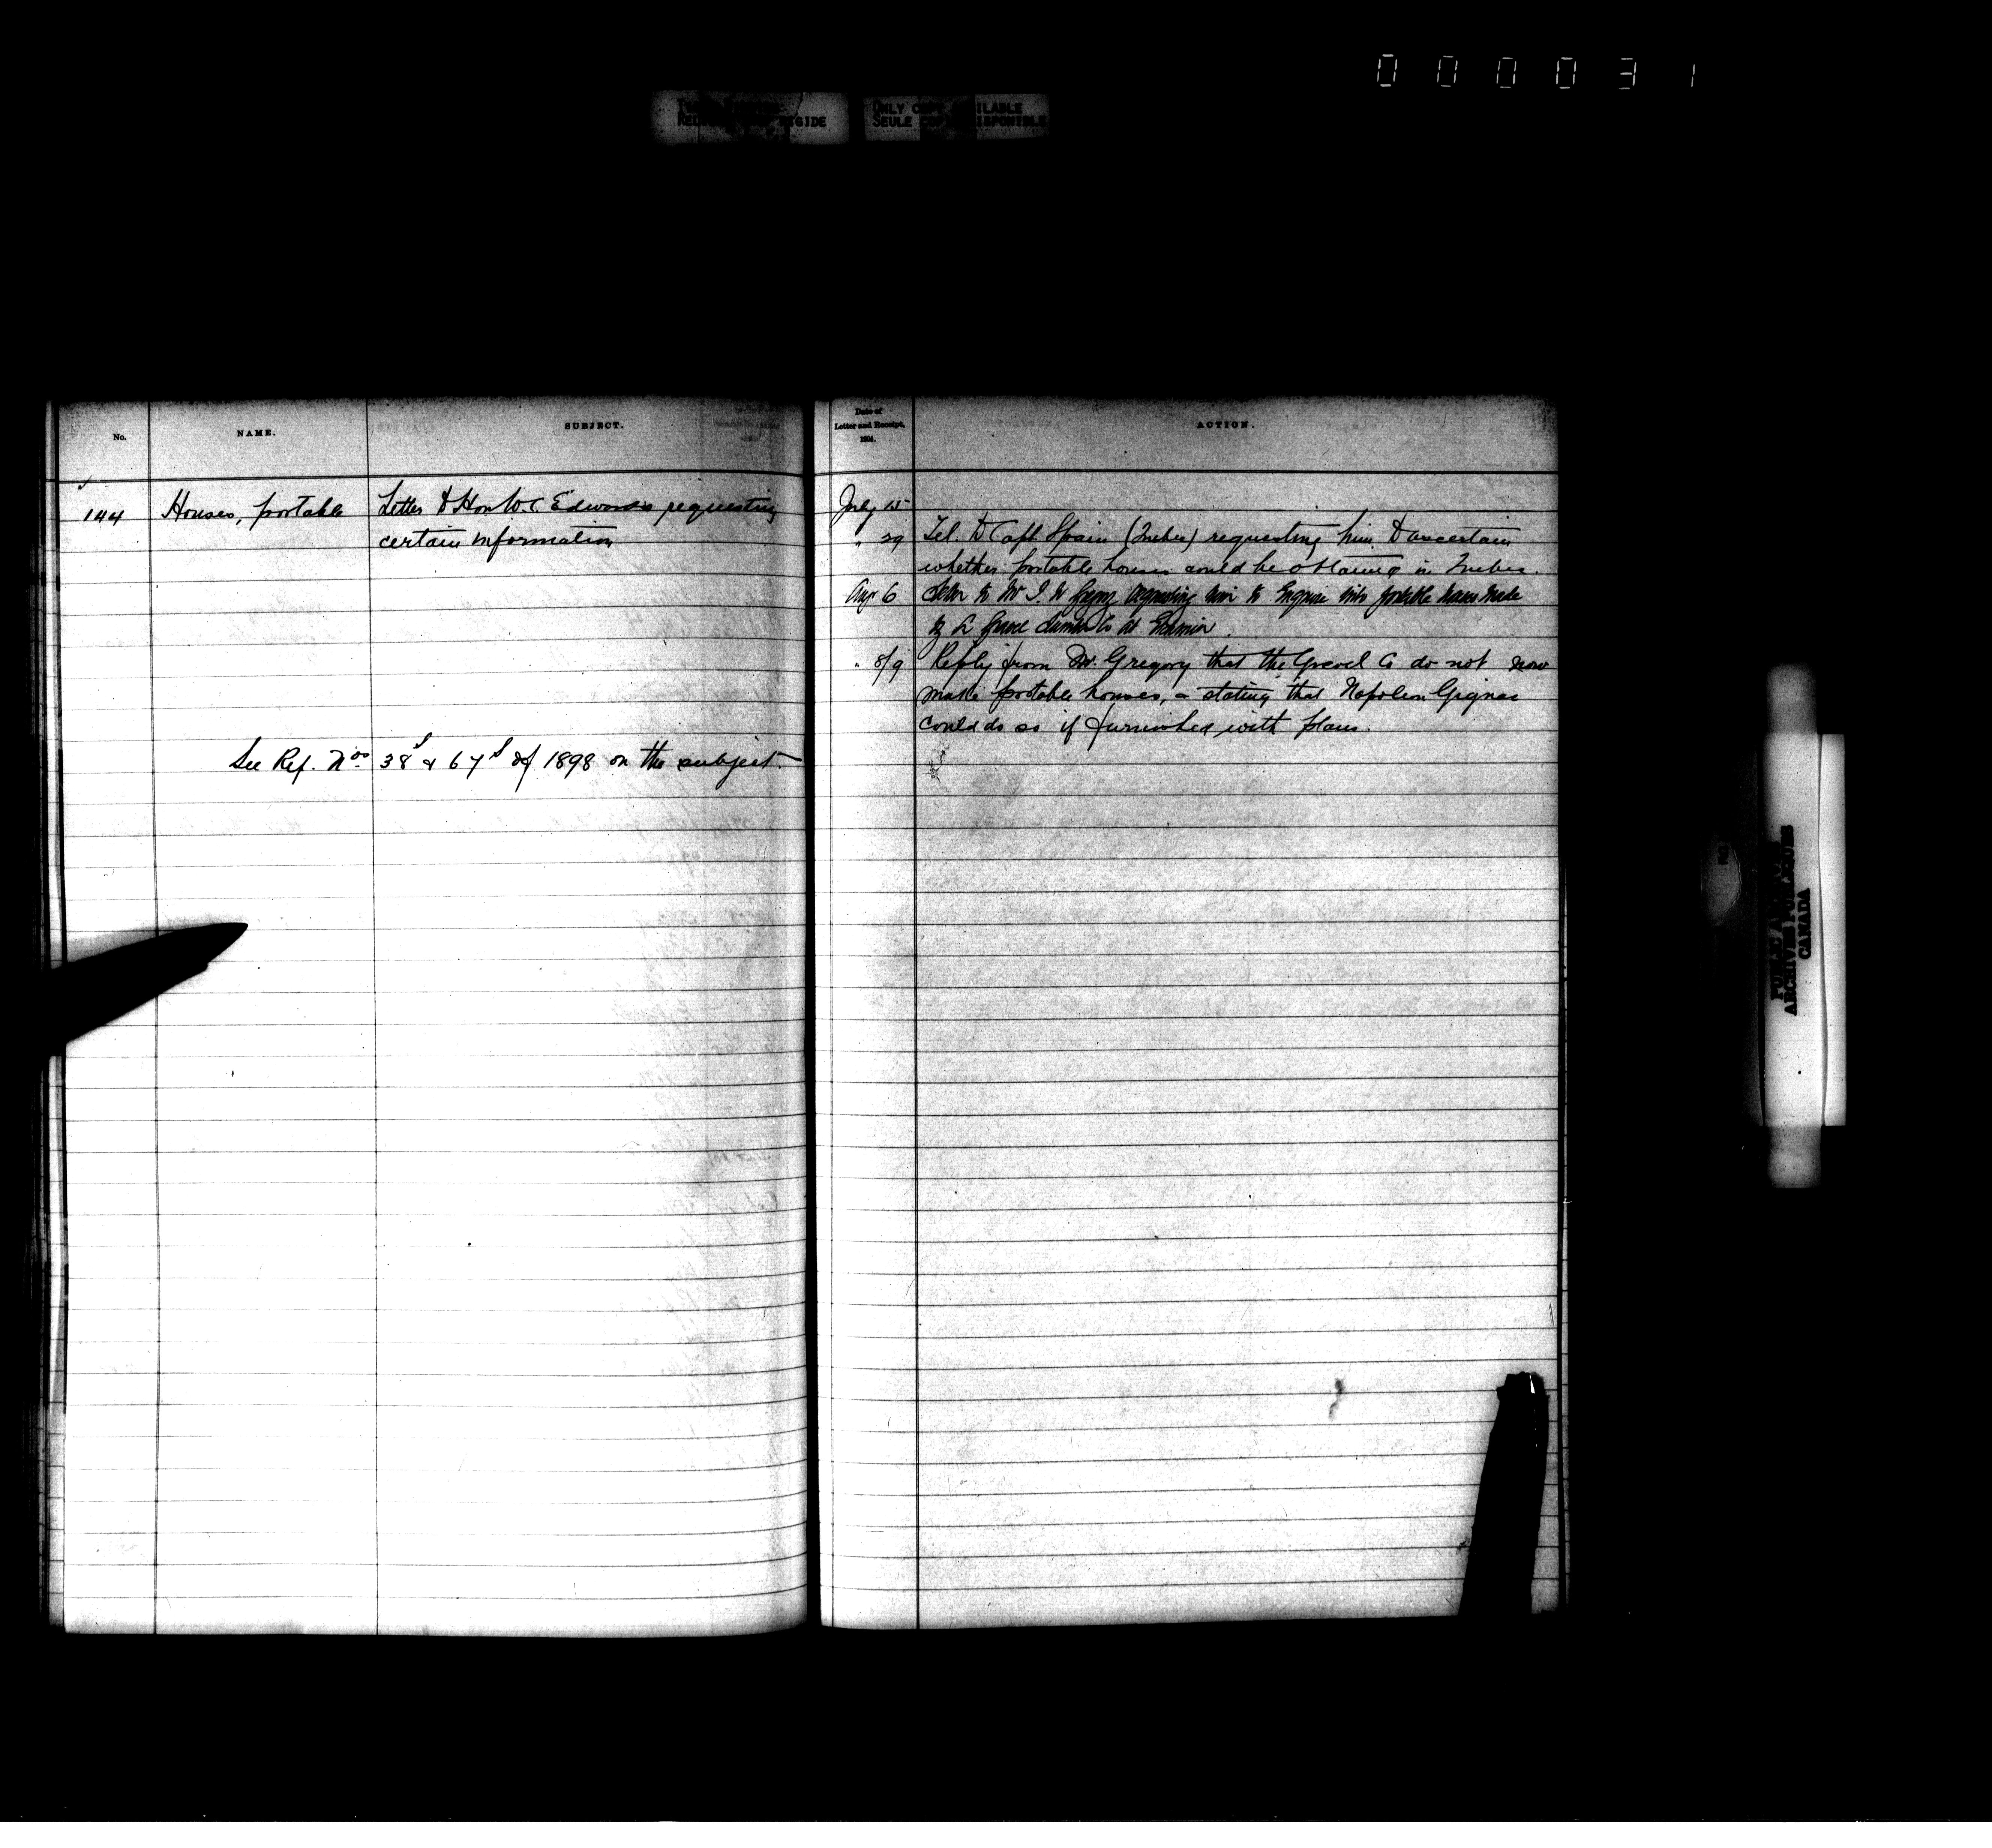 000031
ONLY COPY AVAILABLE
SEULE COPIE DISPONIBLE
No.
NAME.
SUBJECT.
Date of
Letter and Receipt,
ACTION.
144 Houses, portable Letter to Hon W.C. Edwards requesting
certain information
July 15
" 29 Tel. to Capt Spain (Quebec) requesting him to ascertain
whether portable houses could be obtained in Quebec.
Aug 6 Letter to Mr J. U. Gregory requesting him to enquire into portable houses made
by
" 8/9 Reply from Mr. Gregory that the Gravel Co do not now
make portable houses, & stating that Napoleon Gignac
could do so if furnished with plans.
See Ref. Nos 38s & 67s of 1898 on the subject.
PUBLIC ARCHIVES
ARCHIVES PUBLIQUES
CANADA